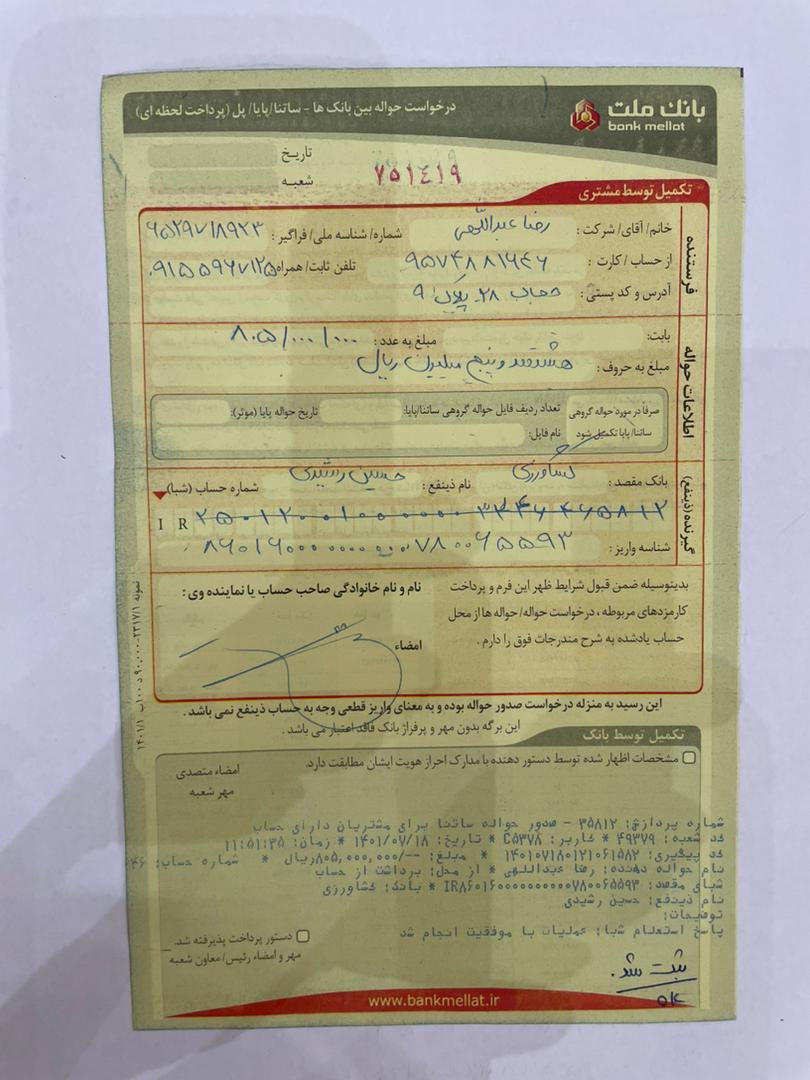 بانک ملت
bank mellat
درخواست حواله بین بانک ها - ساتنا/پایا/ پل (پرداخت لحظه ای)
تاریخ
شعبه
۷۵۱٤۱۹
تکمیل توسط مشتری
فرستنده
خانم/ آقای/ شرکت : رضا عبداللهی شماره/ شناسه ملی/ فراگیر :
از حساب / کارت : تلفن ثابت/ همراه: ۰۹۱۵۵۹۶۷۱۲۵
آدرس و کد پستی : ۲۸ پلاک ۹
اطلاعات حواله
بابت: مبلغ به عدد : ۸۰۵/۰۰۰/۰۰۰
مبلغ به حروف : هشتصد و پنج میلیون ریال
صرفا در مورد حواله گروهی تعداد ردیف فایل حواله گروهی ساتنا/پایا: تاریخ حواله پایا (موثر):
ساتنا/ پایا تکمیل شود نام فایل:
گیرنده (ذینفع)
بانک مقصد : کشاورزی نام ذینفع : حسین رشیدی شماره حساب (شبا)
I R
شناسه واریز : ۸۶۰۱۶۰۰۰۰۰۰۰۰۰۰۰۷۸۰۰۶۵۵۹۳
بدینوسیله ضمن قبول شرایط ظهر این فرم و پرداخت
کارمزدهای مربوطه ، درخواست حواله/ حواله ها از محل
حساب یادشده به شرح مندرجات فوق را دارم .
نام و نام خانوادگی صاحب حساب یا نماینده وی :
امضاء
این رسید به منزله درخواست صدور حواله بوده و به معنای واریز قطعی وجه به حساب ذینفع نمی باشد .
این برگه بدون مهر و پرفراژ بانک فاقد اعتبار می باشد .
تکمیل توسط بانک
مشخصات اظهار شده توسط دستور دهنده با مدارک احراز هویت ایشان مطابقت دارد.
امضاء متصدی
مهر شعبه
شماره پردازش: ۳۵۸۱۲ - صدور حواله ساتنا برای مشتریان دارای حساب
کد شعبه: ۴۹۳۷۹ * کاربر: C۵۳۷۸ * تاریخ: ۱۴۰۱/۰۷/۱۸ * زمان: ۱۱:۵۱:۳۵
کد پیگیری: ۱۴۰۱۰۷۱۸۰۱۲۱۰۶۱۵۸۲ * مبلغ: --/۸۰۵,۰۰۰,۰۰۰ریال * شماره حساب:
نام حواله دهنده: رضا عبداللهی * از محل: برداشت از حساب
شبای مقصد: IR۸۶۰۱۶۰۰۰۰۰۰۰۰۰۰۰۷۸۰۰۶۵۵۹۳ * بانک: کشاورزی
نام ذینفع: حسین رشیدی
توضیحات:
پاسخ استعلام شبا: عملیات با موفقیت انجام شد
دستور پرداخت پذیرفته شد.
مهر و امضاء رئیس/ معاون شعبه
ثبت شد.
www.bankmellat.ir